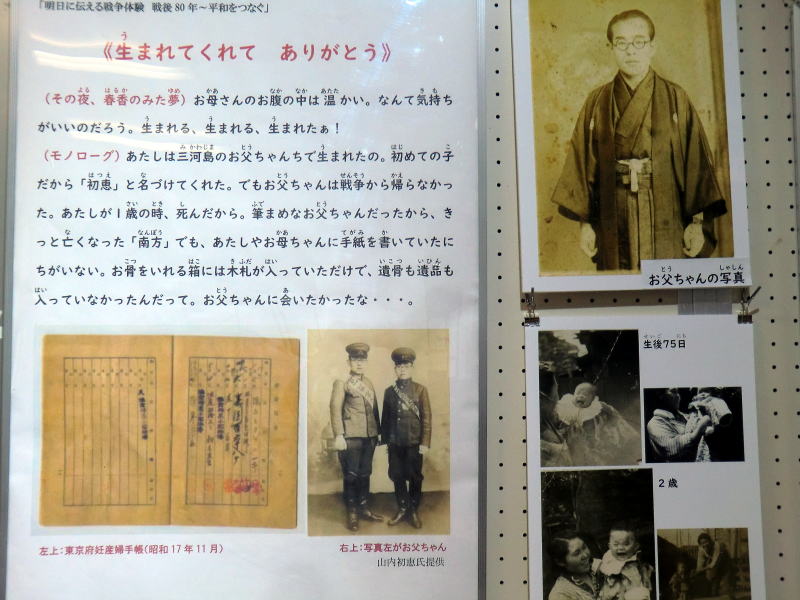 「明日に伝える戦争体験 戦後80年～平和をつなぐ」
《生まれてくれて ありがとう》
（その夜、春香のみた夢）お母さんのお腹の中は温かい。なんて気持ち
がいいのだろう。生まれる、生まれる、生まれたぁ！
（モノローグ）あたしは三河島のお父ちゃんちで生まれたの。初めての子
だから「初恵」と名づけてくれた。でもお父ちゃんは戦争から帰らなかっ
た。あたしが1歳の時、死んだから。筆まめなお父ちゃんだったから、き
っと亡くなった「南方」でも、あたしやお母ちゃんに手紙を書いていたに
ちがいない。お骨をいれる箱には木札が入っていただけで、遺骨も遺品も
入っていなかったんだって。お父ちゃんに会いたかったな・・・。
左上：東京府妊産婦手帳（昭和17年11月）
右上：写真左がお父ちゃん
山内初恵氏提供
お父ちゃんの写真
生後75日
2歳